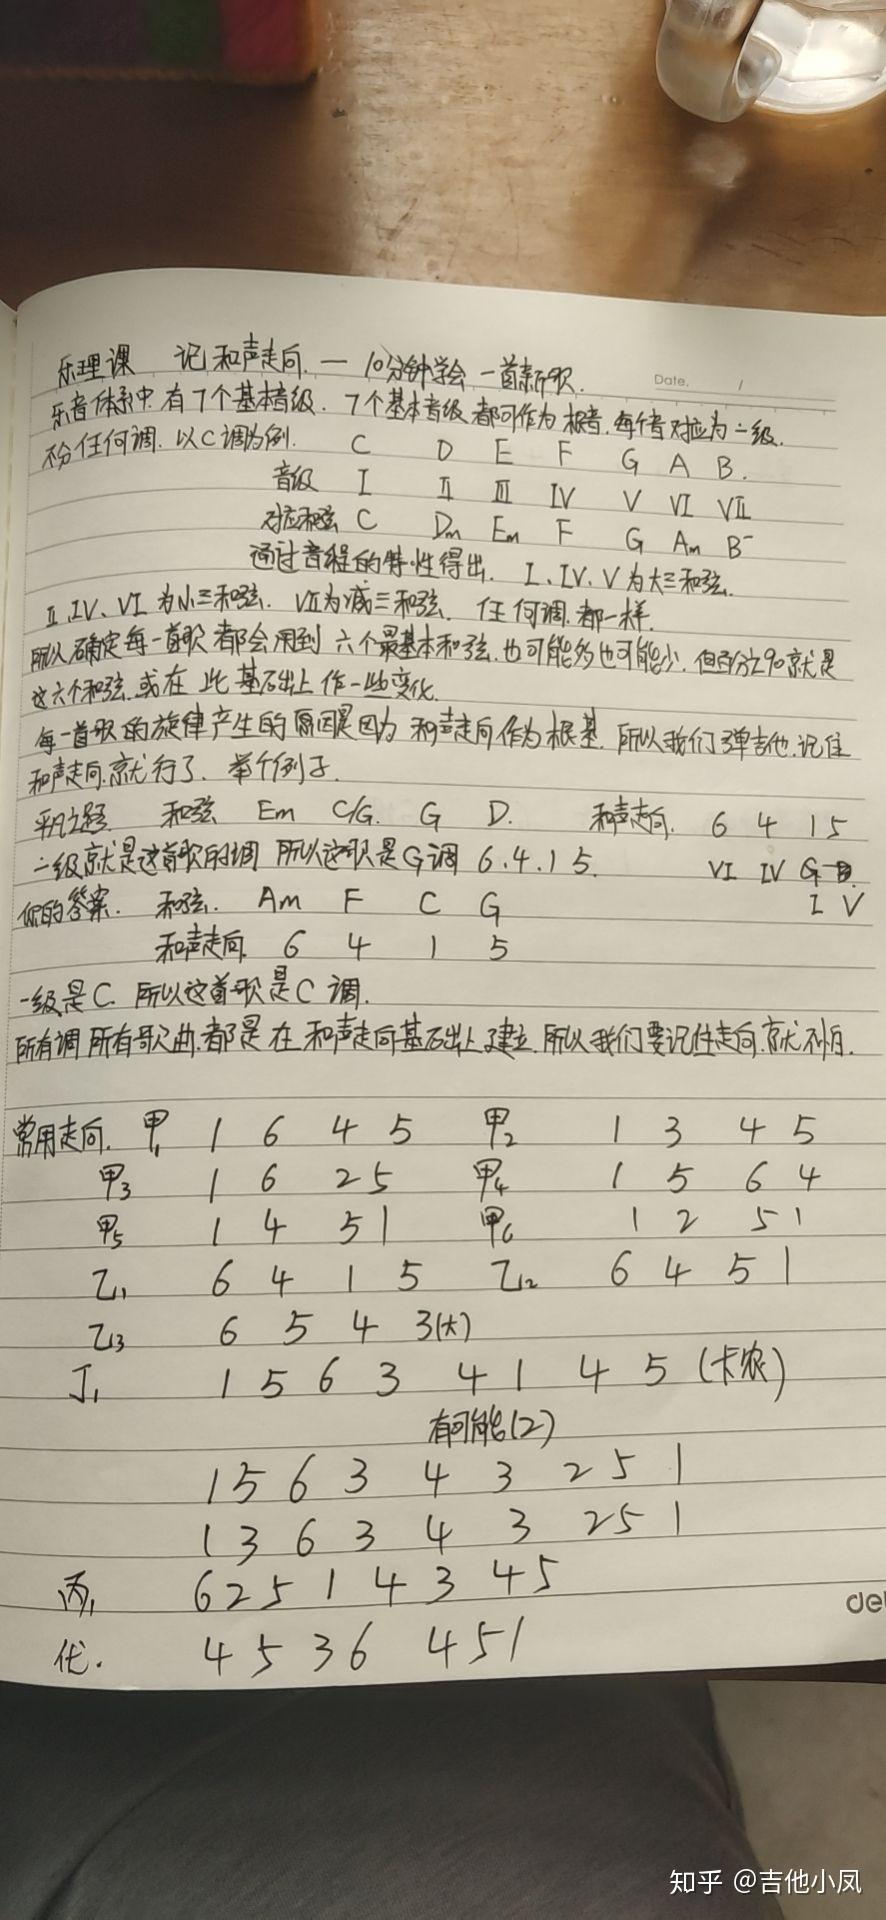 乐理课 记和声走向 — 10分钟学会一首新歌.
Date. /
乐音体系中有7个基本音级. 7个基本音级都可作为根音.每个音对应为一级.
不分任何调.以C调为例. C D E F G A B.
音级 I II III IV V VI VII
对应和弦 C Dm Em F G Am B-
通过音程的特性得出. I、IV、V为大三和弦.
II、IV、VI为小三和弦. VII为减三和弦. 任何调.都一样.
所以确定每一首歌都会用到六个最基本和弦.也可能多也可能少.但百分之90就是
这六个和弦.或在此基础上作一些变化.
每一首歌的旋律产生的原因是因为和声走向作为根基.所以我们弹吉他.记住
和声走向.就行了. 举个例子.
平凡之路 和弦 Em C/G. G D. 和声走向. 6 4 1 5
一级就是这首歌的调 所以这歌是G调 6.4.1 5. VI IV G D.
I V
你的答案. 和弦. Am F C G
和声走向. 6 4 1 5
一级是C. 所以这首歌是C调.
所有调所有歌曲.都是在和声走向基础上建立.所以我们要记住走向.就不怕.
常用走向. 甲1 1 6 4 5 甲2 1 3 4 5
甲3 1 6 2 5 甲4 1 5 6 4
甲5 1 4 5 1 甲6 1 2 5 1
乙1 6 4 1 5 乙2 6 4 5 1
乙3 6 5 4 3(大)
丁1 1 5 6 3 4 1 4 5 (卡农)
有可能(2)
1 5 6 3 4 3 2 5 1
1 3 6 3 4 3 2 5 1
丙1 6 2 5 1 4 3 4 5
优. 4 5 3 6 4 5 1
知乎 @吉他小凤